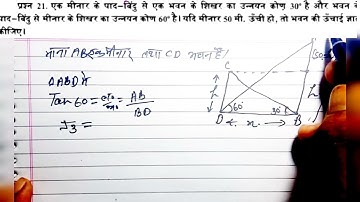 प्रश्न 21. एक मीनार के पाद-बिंदु से एक भवन के शिखर का उन्नयन कोण 30° है और भवन के
पाद-बिंदु से मीनार के शिखर का उन्नयन कोण 60° है। यदि मीनार 50 मी. ऊंची हो, तो भवन की ऊंचाई ज्ञा
कीजिए।
माना AB मीनार तथा CD भवन है।
ΔABD में
Tan 60 = = AB/BD
√3 =
C
h
60°
30°
D
x
B
50
h